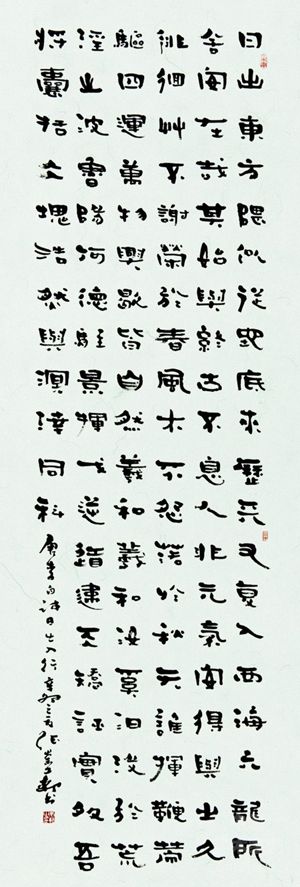 日出東方隈似從地底來歷天又復入西海六龍所
舍安在哉其始與終古不息人非元氣安得與之久
徘徊艸不謝榮於春風木不怨落於秋天誰揮鞭策
驅四運萬物興歇皆自然羲和羲和汝奚汩沒於荒
淫之波魯陽何德駐景揮戈逆道違天矯誣實多吾
將囊括大塊浩然與溟涬同科
唐李白詩日出入行辛